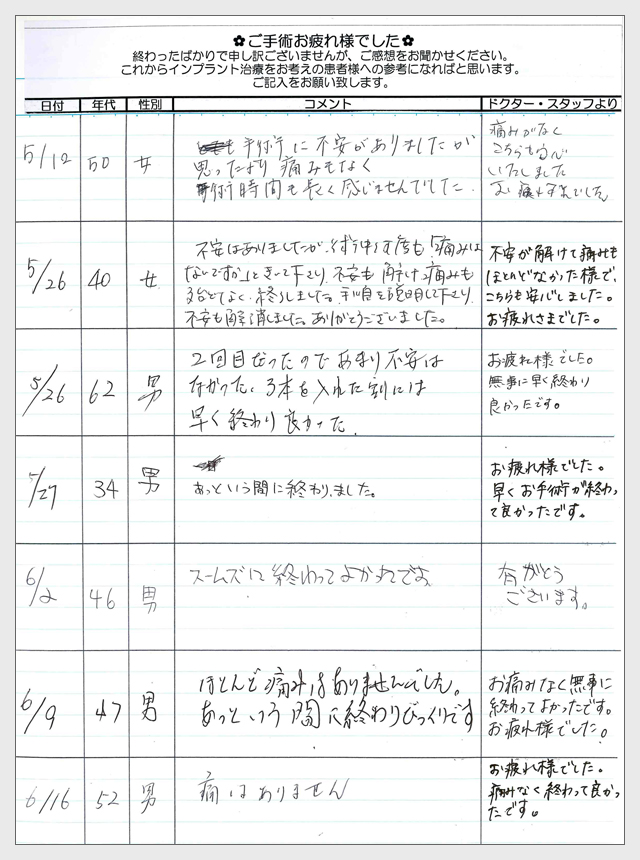 ✿ご手術お疲れ様でした✿
終わったばかりで申し訳ございませんが、ご感想をお聞かせください。
これからインプラント治療をお考えの患者様への参考になればと思います。
ご記入をお願い致します。
日付 年代 性別 コメント ドクター・スタッフより
5/12 50 女
手術に不安がありましたが
思ったより痛みもなく
術時間も長く感じませんでした.
痛みがなく
こちらも安心
いたしました
お疲れ様でした
5/26 40 女
不安はありましたが、 何度も「痛みは
ないですか」ときいて下さり、不安も解け、痛みも
ほとんどなく、終了しました。手順を説明して下さり、
不安も解消しました。ありがとうございました。
不安が解けて痛みも
ほとんどなかった様で、
こちらも安心しました。
お疲れさまでした。
5/26 62 男
2回目だったのであまり不安は
なかった、3本を入れた割には
早く終わり良かった.
お疲れ様でした。
無事に早く終わり
良かったです。
5/27 34 男
あっという間に終わりました。
お疲れ様でした。
早くお手術が終わっ
て良かったです。
6/2 46 男
スームズに終わってよかたです
有がとう
ございます。
6/9 47 男
ほとんど痛みはありませんでした。
あっという間に終わりびっくりです
お痛みなく無事に
終わってよかったです。
お疲れ様でした。
6/16 52 男
痛はありません
お疲れ様でした。
痛みなく終わって良かっ
たです。